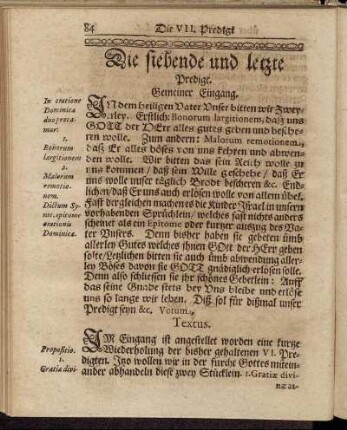 84 Die VII. Predigt
Die siebende und letzte
Predigt.
Gemeiner Eingang.
In oratione
Dominica
duo preca-
mur.
1.
Bonorum
largitionem
2.
Malorum
remotio-
nem.
Dictum Sy-
epitome
orationis
Dominicæ.
IN dem heiligen Vater Unser bitten wir Zwey-
erley. Erstlich: Bonorum largitionem, daß uns
GOTT der HErr alles gutes geben und besche-
ren wolle. Zum andern: Malorum remotionem,
daß Er alles böses von uns kehren und abwen-
den wolle. Wir bitten das sein Reich wolle zu
uns kommen / daß sein Wille geschehe / daß Er
uns wolle unser täglich Brodt bescheren &c. End-
lichen / daß Er uns auch erlösen wolle von allem übel.
Fast der gleichen machen es die Kinder Israel in unsern
vorhabenden Sprüchlein / welches fast nichts anders
scheinet als ein Epitome oder kurzer auszug des Va-
ter Unsers. Denn bisher haben sie gebeten umb
allerley Gutes welches ihnen GOtt der HErr geben
solte / Letzlichen bitten sie auch umb abwendung aller-
ley Böses davon sie GOTT gnädiglich erlösen solle.
Denn also schliessen sie ihr schönes Gebetlein: Auff
das seine Gnade stets bey Uns bleibe und erlöse
uns so lange wir leben. Diß sol für dißmal unser
Predigt seyn &c. Votum.
Textus.
Propositio.
1.
Gratiæ divi-
IM Eingang ist angestellet worden eine kurze
Wiederholung der bisher gehaltenen VI. Pre-
digten. Itzo wollen wir in der furcht Gottes mitein-
ander abhandeln diese zwey Stücklein. 1. Gratiæ divi-
næ